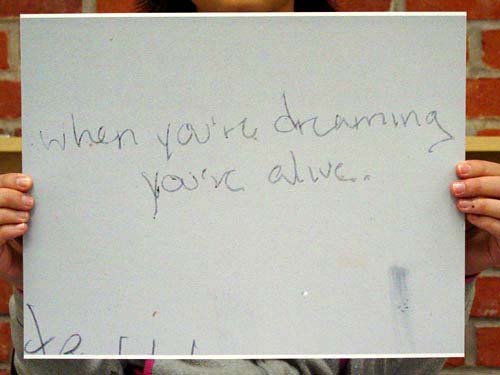 when you're dreaming
you're alive.